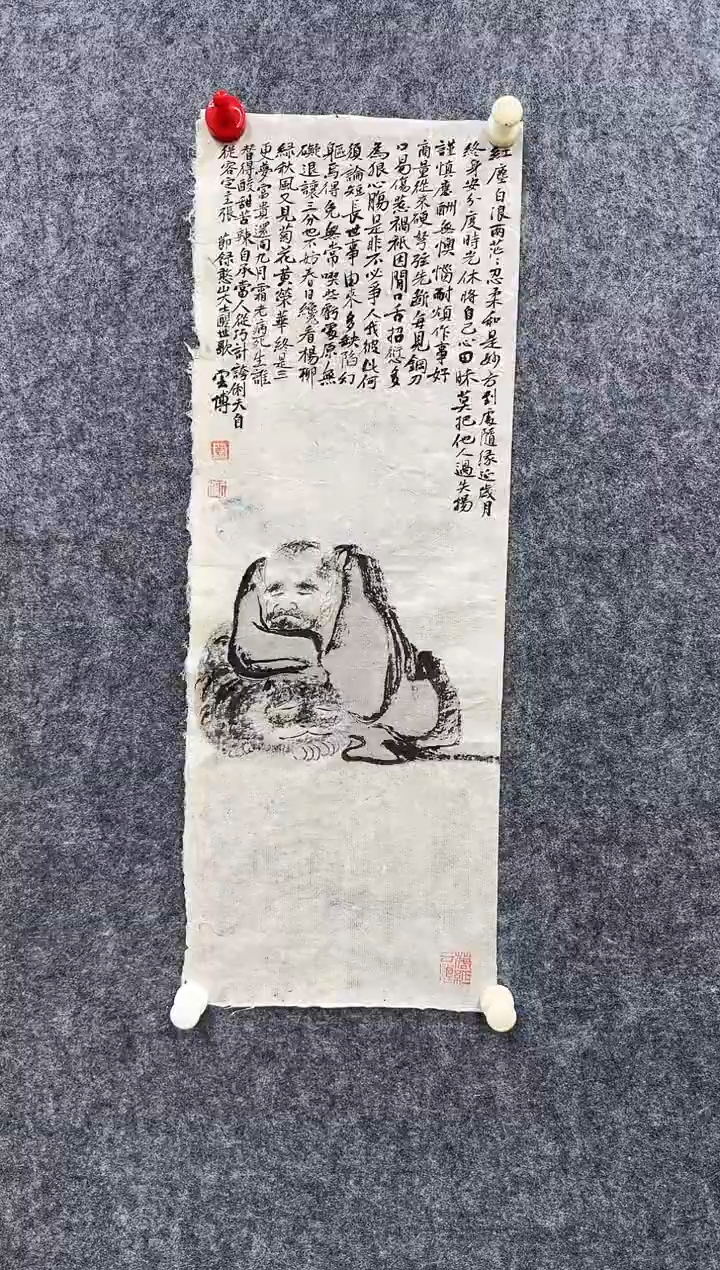 紅塵白浪兩茫茫忍柔和是妙方到處隨緣延歲月
終身安分度時光休將自己心田昧莫把他人過失揚
謹慎應酬無懊惱耐煩作事好
商量從來硬弩弦先斷每見鋼刀
口易傷惹禍衹因閒口舌招愆多
為狠心腸是非不必爭人我彼此何
須論短長世事由來多缺陷幻
軀焉得免無常喫些虧處原無
礙退讓三分也不妨春日纔看楊柳
綠秋風又見菊花黃榮華終是三
更夢富貴還同九月霜老病死生誰
替得酸甜苦辣自承當人從巧計誇俐天自
從容定主張 節錄憨山大師醒世歌 雲博